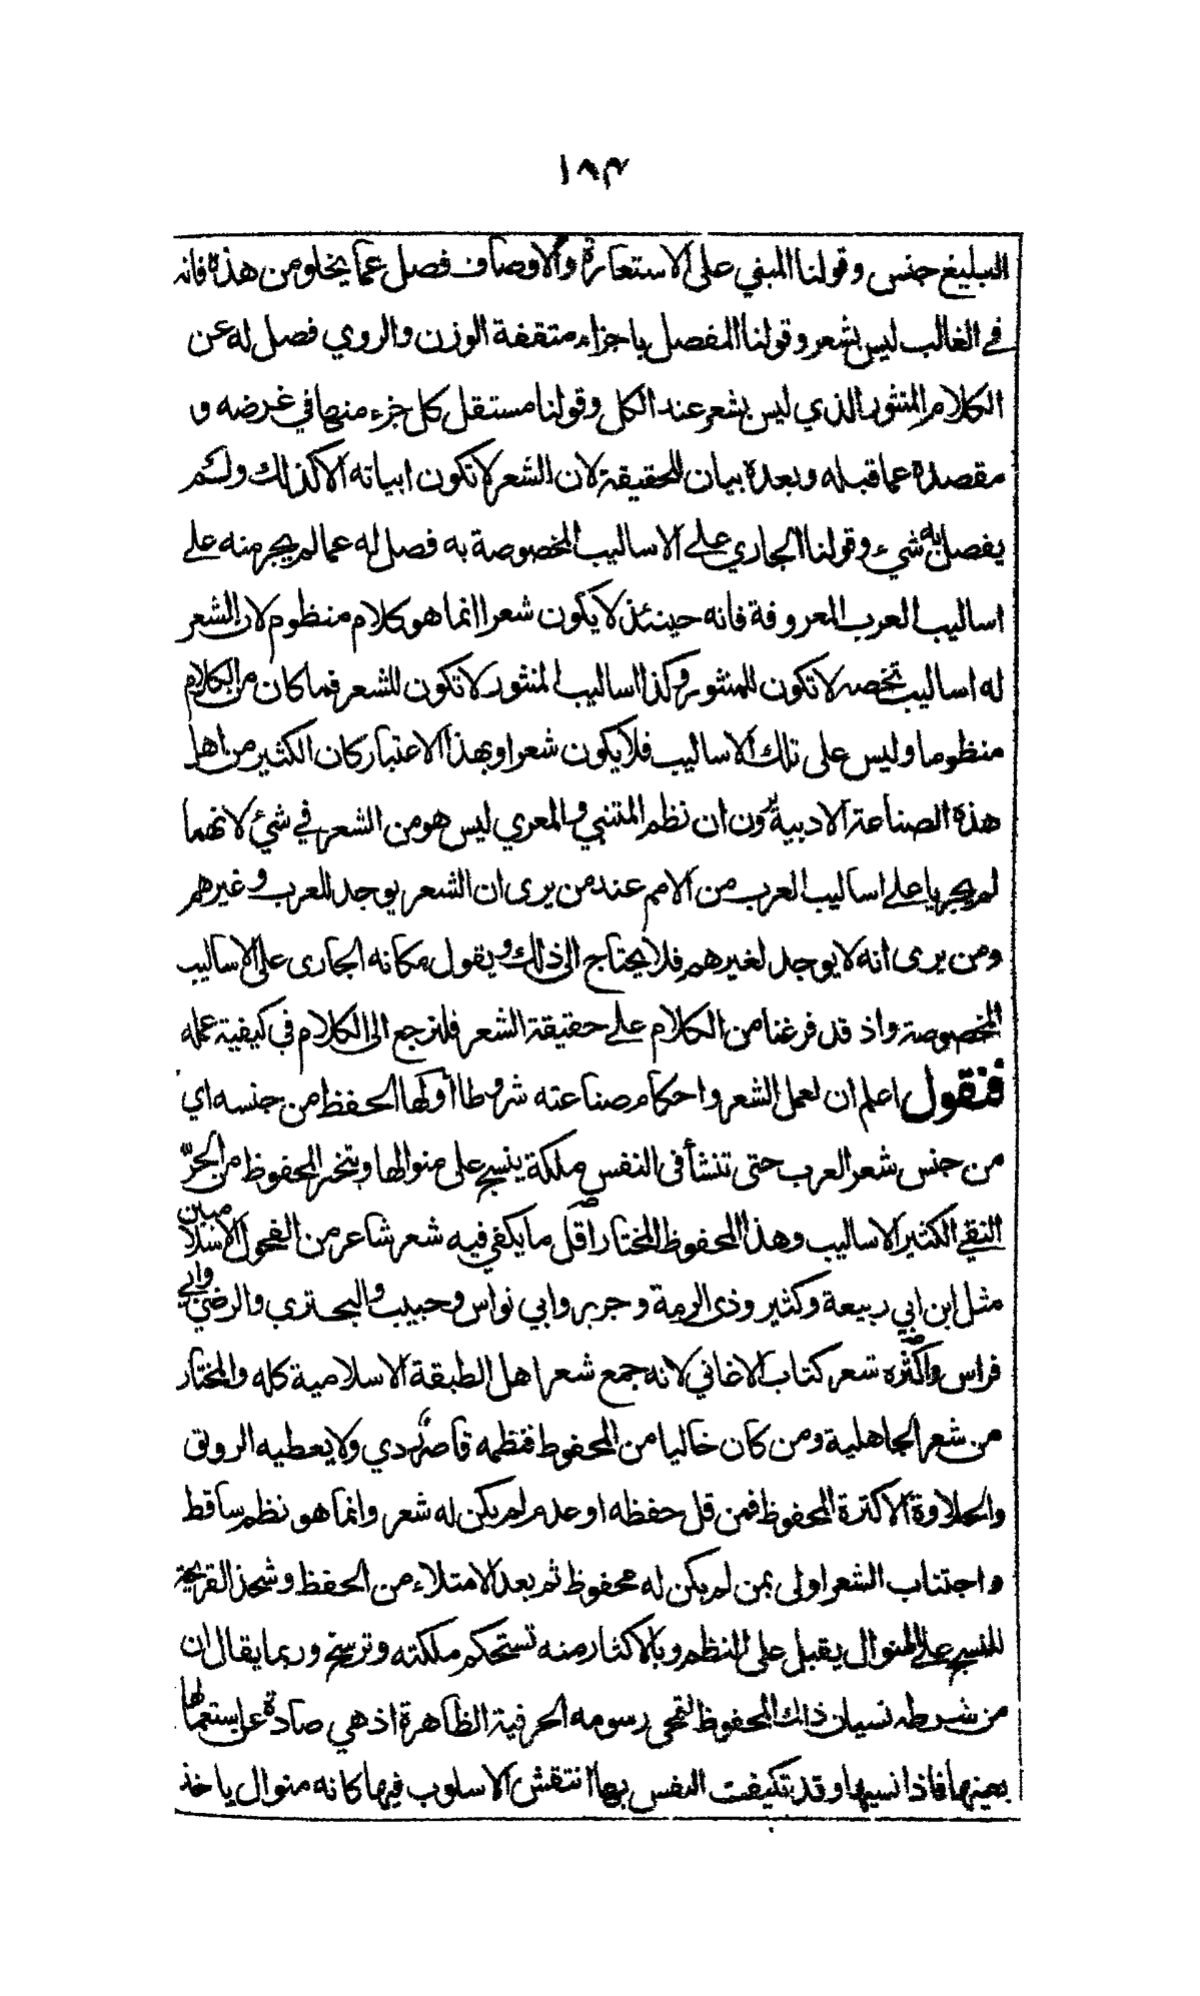 ١٨٣
البليغ جنس وقولنا المبني على الاستعارة والاوصاف فصل عما يخلو من هذه فانه
في الغالب ليس بشعر وقولنا المفصل باجزاء متفقة الوزن والروي فصل له عن
الكلام المنثور الذي ليس بشعر عند الكل وقولنا مستقل كل جزء منها في غرضه و
مقصده عما قبله وبعده بيان للحقيقة لان الشعر لا تكون ابياته الا كذلك ولم
يفصل به شيء وقولنا الجاري على الاساليب المخصوصة به فصل له عما لم يجر منه على
اساليب العرب المعروفة فانه حينئذ لا يكون شعرا انما هو كلام منظوم لان الشعر
له اساليب تخصه لا تكون للمنثور وكذا اساليب المنثور لا تكون للشعر فما كان من الكلام
منظوما وليس على تلك الاساليب فلا يكون شعرا وبهذا الاعتبار كان الكثير من اهل
هذه الصناعة الادبية يرون ان نظم المتنبي والمعري ليس هو من الشعر في شيء لانهما
لم يجريا على اساليب العرب من الامم عند من يرى ان الشعر يوجد للعرب وغيرهم
ومن يرى انه لا يوجد لغيرهم فلا يحتاج الى ذلك ويقول مكانه الجارى على الاساليب
المخصوصة واذ قد فرغنا من الكلام على حقيقة الشعر فلنرجع الى الكلام في كيفية عمله
فنقول اعلم ان لعمل الشعر واحكام صناعته شروطا اولها الحفظ من جنسه اي
من جنس شعر العرب حتى تنشأ فى النفس ملكة ينسج على منوالها ويتخير المحفوظ من الحرّ
النقي الكثير الاساليب وهذا المحفوظ المختار اقل ما يكفي فيه شعر شاعر من الفحول الاسلاميين
مثل ابن ابي ربيعة وكثير وذى الرمة وجرير وابي نواس وحبيب والبحترى والرضي وابي
فراس واكثره شعر كتاب الاغاني لانه جمع شعر اهل الطبقة الاسلامية كله والمختار
من شعر الجاهلية ومن كان خاليا من المحفوظ فنظمه قاصر ردي ولا يعطيه الرونق
والحلاوة الا كثرة المحفوظ فمن قل حفظه او عدم لم يكن له شعر وانما هو نظم ساقط
واجتناب الشعر اولى بمن لم يكن له محفوظ ثم بعد الامتلاء من الحفظ وشحذ القريحة
للنسج على المنوال يقبل على النظم وبالاكثار منه تستحكم ملكته وترسخ وربما يقال ان
من شرطه نسيان ذلك المحفوظ لتمحى رسومه الحرفية الظاهرة اذ هي صادة عن استعمالها
بعينها فاذا نسيها وقد تكيفت النفس بها انتقش الاسلوب فيها كانه منوال ياخذ